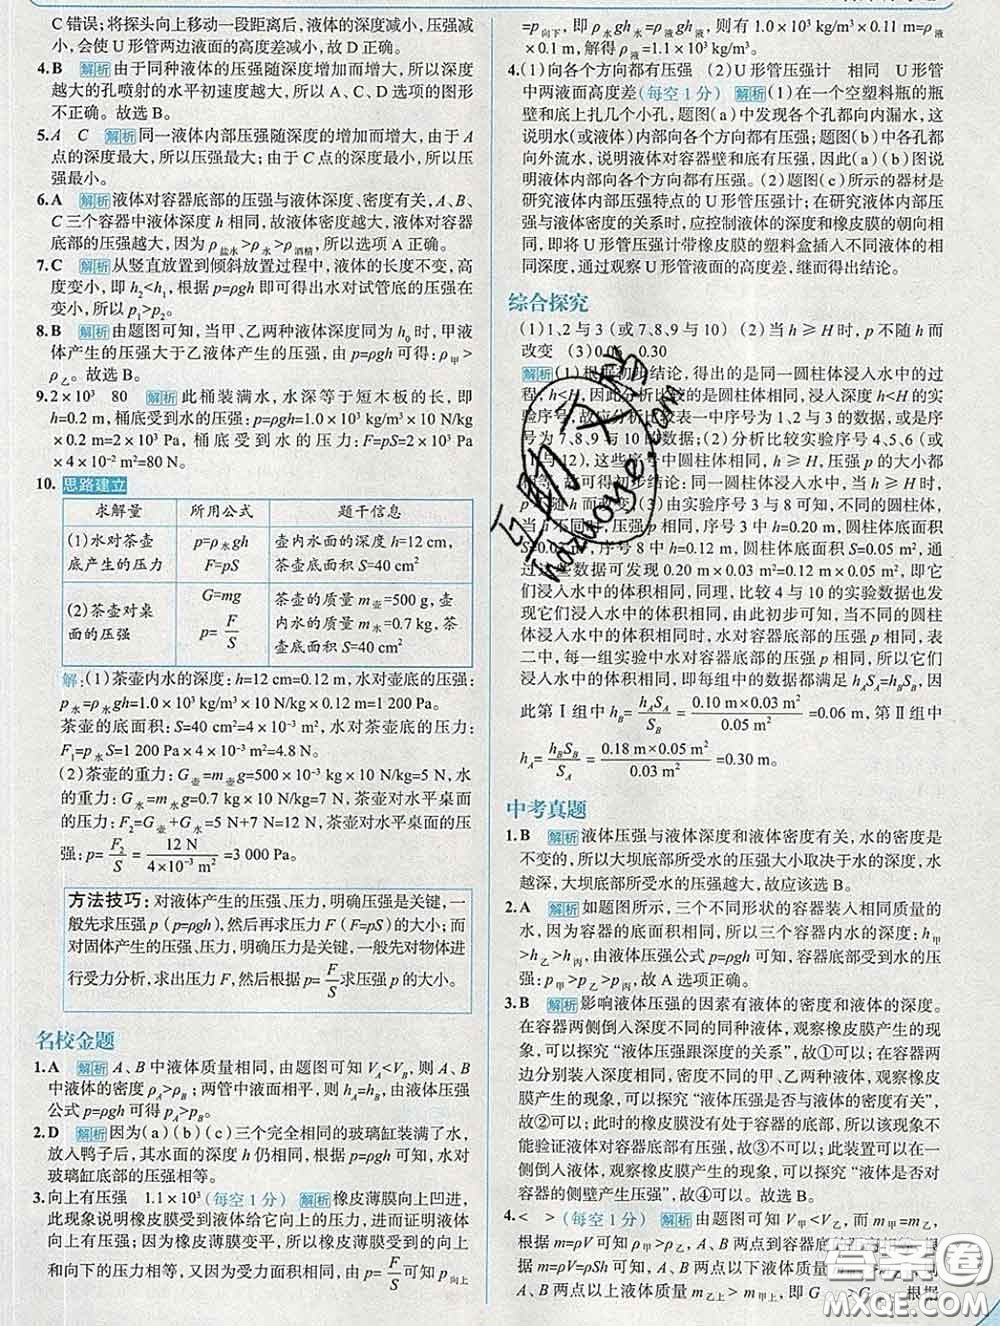 C错误;将探头向上移动一段距离后,液体的深度减小,压强减
小,会使U形管两边液面的高度差减小,故D正确。
4.B 解析 由于同种液体的压强随深度增加而增大,所以深度
越大的孔喷射的水平初速度越大,所以A、C、D选项的图形
不正确。故选B。
5.A C 解析 同一液体内部压强随深度的增加而增大,由于A
点的深度最大,所以压强最大;由于C点的深度最小,所以压
强最小。
6.A 解析 液体对容器底部的压强与液体深度、密度有关,A、B、
C三个容器中液体深度h相同,故液体密度越大,液体对容器
底部的压强越大,因为ρ盐水>ρ水>ρ酒精,所以选项A正确。
7.C 解析 从竖直放置到倾斜放置过程中,液体的长度不变,高
度变小,即h₂<h₁,根据p=ρgh即可得出水对试管底的压强在
变小,所以p₁>p₂。
8.B 解析 由题图可知,当甲、乙两种液体深度同为h₀时,甲液
体产生的压强大于乙液体产生的压强,由p=ρgh可得:ρ甲>
ρ乙。故选B。
9.2×10³ 80 解析 此桶装满水,水深等于短木板的长,即
h=0.2 m,桶底受到水的压强:p=ρgh=1.0×10³ kg/m³×10 N/kg
×0.2 m=2×10³ Pa,桶底受到水的压力:F=pS=2×10³ Pa
×4×10⁻² m²=80 N。
10. 思路建立
求解量 所用公式 题干信息
(1)水对茶壶底产生的压力 p=ρ水gh F=pS 壶内水面的深度h=12 cm,茶壶底面积S=40 cm²
(2)茶壶对桌面的压强 G=mg p=F/S 茶壶的质量m壶=500 g,壶内水的质量m水=0.7 kg,茶壶底面积S=40 cm²
解:(1)茶壶内水的深度:h=12 cm=0.12 m,水对壶底的压强:
p水=ρ水gh=1.0×10³ kg/m³×10 N/kg×0.12 m=1 200 Pa。
茶壶的底面积:S=40 cm²=4×10⁻³ m²,水对茶壶底的压力:
F₁=p水S=1 200 Pa×4×10⁻³ m²=4.8 N。
(2)茶壶的重力:G壶=m壶g=500×10⁻³ kg×10 N/kg=5 N,水
的重力:G水=m水g=0.7 kg×10 N/kg=7 N,茶壶对水平桌面的
压力:F₂=G壶+G水=5 N+7 N=12 N,茶壶对水平桌面的压
强:p=F₂/S=12 N/4×10⁻³ m²=3 000 Pa。
方法技巧:对液体产生的压强、压力,明确压强是关键,一
般先求压强p(p=ρgh),然后再求压力F(F=pS)的大小;而
对固体产生的压强、压力,明确压力是关键,一般先对物体进
行受力分析,求出压力F,然后根据p=F/S求压强p的大小。
名校金题
1.A 解析 A、B中液体质量相同,由题图可知V_A<V_B,则A、B
中液体的密度ρ_A>ρ_B;两管中液面相平,则h_A=h_B,由液体压强
公式p=ρgh可得p_A>p_B。
2.D 解析 因为(a)(b)(c)三个完全相同的玻璃缸装满了水,
放入鸭子后,其水面的深度h仍相同,根据p=ρgh可知,水对
玻璃缸底部的压强相等。
3.向上有压强 1.1×10³(每空1分) 解析 橡皮薄膜向上凹进,
此现象说明橡皮膜受到液体给它向上的压力,进而证明液体
向上有压强;因为橡皮薄膜形状不变,所以橡皮薄膜受到的向上
和向下的压力相等,又因为受力面积相同,由p=F/S可知p向上
=p向下,即ρ水gh水=ρ液gh液,所以有1.0×10³ kg/m³×0.11 m=ρ液
×0.1 m,解得ρ液=1.1×10³ kg/m³。
4.(1)向各个方向都有压强 (2)U形管压强计 相同 U形管
中两液面高度差(每空1分) 解析 (1)在一个空塑料瓶的瓶
壁和底上扎几个小孔,题图(a)中发现各个孔都向内漏水,这
说明水(或液体)内部向各个方向都有压强;题图(b)中各孔都
向外流水,说明液体对容器壁和底有压强,因此(a)(b)图说
明液体内部向各个方向都有压强。(2)题图(c)所示的器材是
研究液体内部压强特点的U形管压强计;在研究液体内部压
强与液体密度的关系时,应控制液体的深度和橡皮膜的朝向相
同,即将U形管压强计带橡皮膜的塑料盒插入不同液体的相
同深度,通过观察U形管液面的高度差,继而得出结论。
综合探究
(1)1、2与3(或7、8、9与10) (2)当h≥H时,p不随h而
改变 (3)0.06 0.30
解析 (1)根据初步结论,得出的是同一圆柱体浸入水中的过
程,h<H,因此分析比较的是圆柱体相同,浸入深度h<H的实
验序号,故应分析比较表一中序号为1、2与3的数据,或是序
号为7、8、9与10的数据;(2)分析比较实验序号4、5、6(或
与12),这些序号中圆柱体相同,h≥H,压强p的大小都
,故可得初步结论:同一圆柱体浸入水中,当h≥H
随h而改变;(3)由实验序号3与8可知,不同的圆柱体,
当h不同,压强p相同,序号3中h=0.20 m,圆柱体底面积
S=0.03 m²,序号8中h=0.12 m,圆柱体底面积S=0.05 m²,通
过这些数据可发现0.20 m×0.03 m²=0.12 m×0.05 m²,即它
们浸入水中的体积相同,同理,比较4与10的实验数据也发
现它们浸入水中的体积相同,由此初步可知,当不同的圆柱
体浸入水中的体积相同时,水对容器底部的压强p相同,表
二中,每一组实验中水对容器底部的压强p相同,所以它们
浸入水中的体积相同,即每组中的数据都满足h_AS_A=h_BS_B,因
此第Ⅰ组中h_B=h_AS_A/S_B=0.10 m×0.03 m²/0.05 m²=0.06 m,第Ⅱ组中
h_A=h_BS_B/S_A=0.18 m×0.05 m²/0.03 m²=0.30 m。
中考真题
1.B 解析 液体压强与液体深度和液体密度有关,水的密度是
不变的,所以大坝底部所受水的压强大小取决于水的深度,水
越深,大坝底部所受水的压强越大,故应该选B。
2.A 解析 如题图所示,三个不同形状的容器装入相同质量的
水,因为容器的底面积相同,所以三个容器内水的深度:h甲
>h乙>h丙,由液体压强公式p=ρgh可得,容器底部受到水的压
强:p甲>p乙>p丙,故A选项正确。
3.B 解析 影响液体压强的因素有液体的密度和液体的深度。
在容器两侧倒入深度不同的同种液体,观察橡皮膜产生的现
象,可以探究“液体压强跟深度的关系”,故①可以;在容器两
边分别装入深度相同、密度不同的甲、乙两种液体,观察橡皮
膜产生的现象,可以探究“液体压强是否与液体的密度有关”,
故②可以;此时的橡皮膜没有处于容器的底部,所以该现象不
能验证液体对容器底部有压强,故③不可以;此装置可以在一
侧倒入液体,观察橡皮膜产生的现象,可以探究“液体是否对
容器的侧壁产生压强”,故④可以。故选B。
4.< >(每空1分) 解析 由题图可知V甲<V乙,而m甲=m乙,
根据m=ρV可知ρ甲>ρ乙,A、B两点到容器底
根据m=ρV=ρSh可知,A、B两点以下液体质量
A、B两点以上液体质量m乙上>m甲上,即G >G ,根据
互助文档
huzhuoye.com
答案圈
MXQE.COM